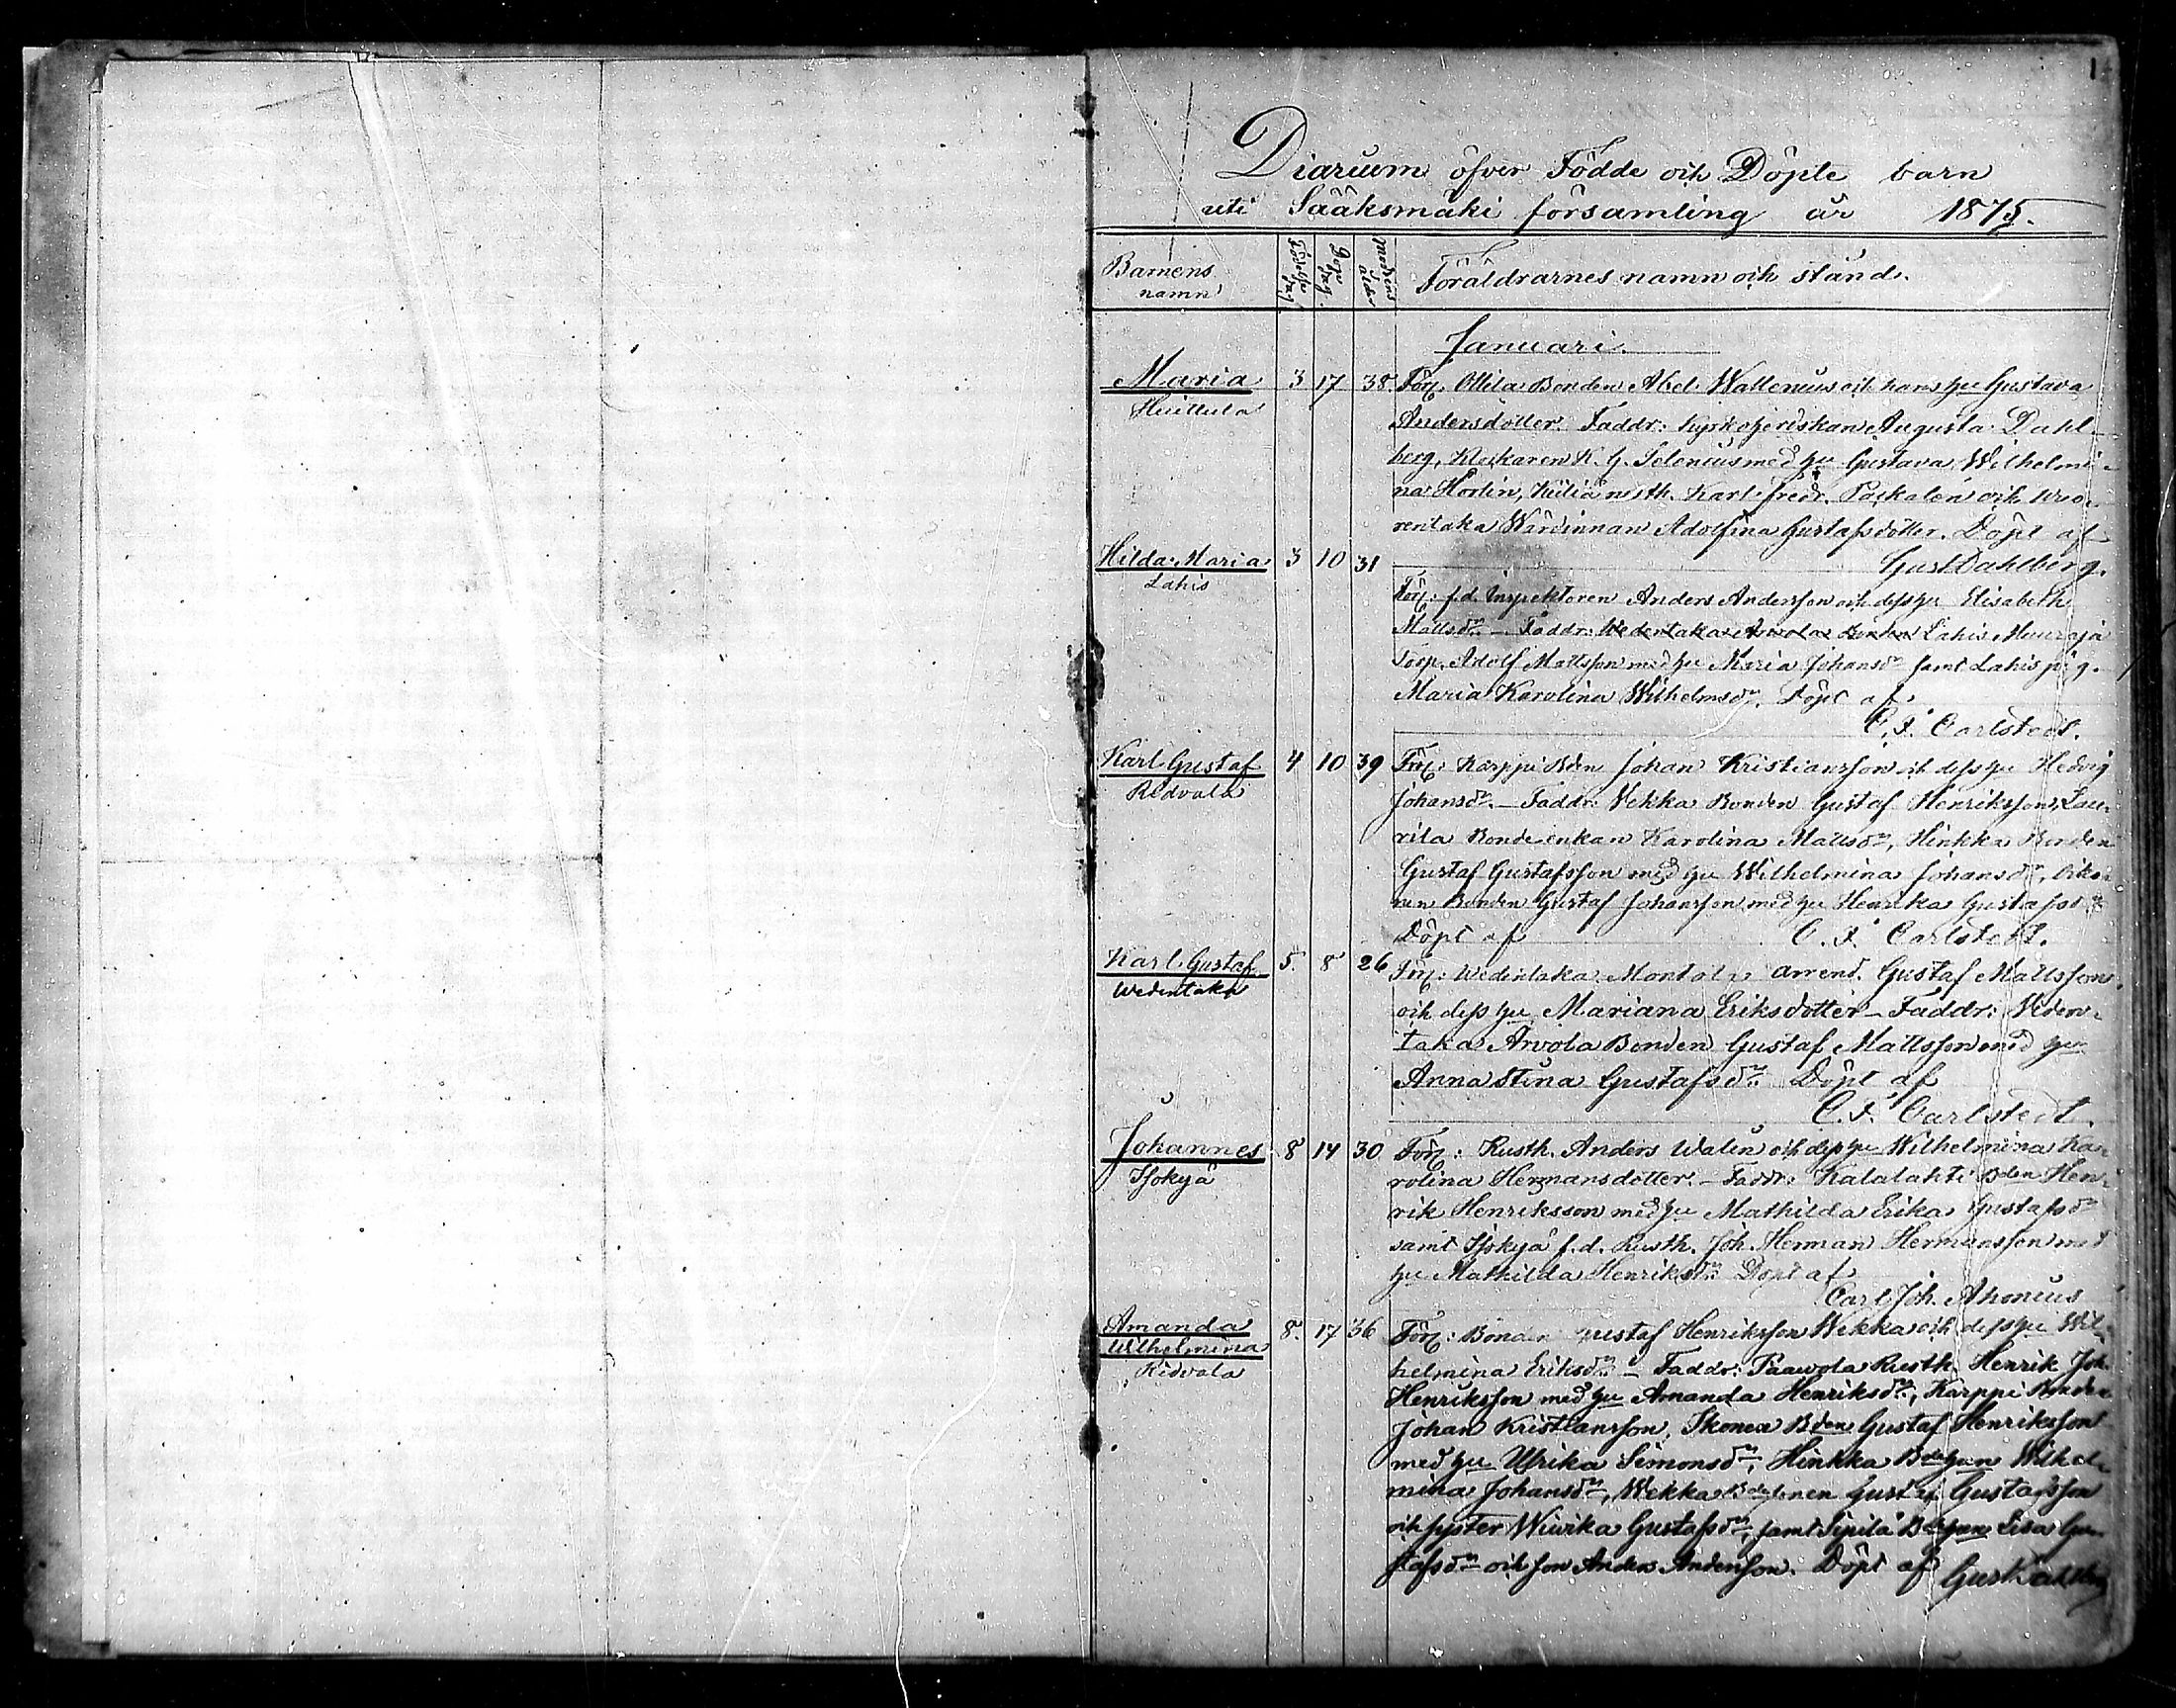 1
Diarium öfver Födde och Döpte barn
uti Sääksmäki församling år 1875.
Barnens namn
Födelse dag
Dope dag.
Modrens ålder
Föräldrarnes namn och stånd.
Januari.
Maria 3 17 38 Förä. Ollila Bonden Abel Wallenius och hans hu Gustava
Huittula
Andersdotter. Faddr: Kyrkoherdskan Augusta Dahl-
berg, Klockaren K. G. Selenius med hu Gustava Wilhelmi-
na Hortin, rusth. Karl Fredr. Packalén och
Wärdinnan Adolfina Gustafsdotter. Döpt af
Gust Dahlberg.
Hilda Maria 3 10 31
Lahis
Förä: f.d. Inspektoren Anders Andersson och dess hu Elisabeth
Mattsdr. – Faddr: Wedentaka Arvola Bonden Lahis
Torp. Adolf Mattsson med hu Maria Johansdr samt Lahis pig.
Maria Karolina Wilhelmsdr. Döpt af
C. F. Carlstedt.
Karl Gustaf 4 10 39 Förä: Karppi Bden Johan Kristiansson och dess hu Hedvig
Ridvala
Johansdr. – Faddr: Wekka Bonden Gustaf Henriksson, Lau-
rila Bonde enkan Karolina Mattsdr, Hinkka Bonden
Gustaf Gustafsson med hu Wilhelmina Johansdr,
Bonden Gustaf Johansson med hu Henrika Gustafsdr
Döpt af C. F. Carlstedt.
Karl Gustaf 5. 8 26 Förä: Wedentaka arrend. Gustaf Mattsson
Wedentaka
och dess hu Mariana Eriksdotter – Faddr: Weden-
taka Arvola Bonden Gustaf Mattsson med hu
Anna Stina Gustafsdr. Döpt af
C. F. Carlstedt.
Johannes 8 14 30 Förä: Rusth. Anders Walin och dess hu Wilhelmina Ka-
Isokyä
rolina Hermansdotter. – Faddr: Kalalahti Bden Hen-
rik Henriksson med hu Mathilda Erika Gustafsdr
samt Isokyä f.d. Rusth. Joh. Herman Hermansson med
hu Mathilda Henriksdr. Döpt af
Carl Joh. Ahonius
Amanda 8. 17 36 Förä: Bonden Gustaf Henriksson Wekka och dess hu Wil-
Wilhelmina
helmina Eriksdr. – Faddr: Paavola Rusth. Henrik Joh.
Ridvala
Henriksson med hu Amanda Henriksdr, Karppi Bonden
Johan Kristiansson, Bden Gustaf Henriksson
med hu Ulrika Simonsdr, Hinkka Bdehun Wilhel-
mina Johansdr, Wekka Gustaf Gustafsson
och syster Wivika Gustafsdr, samt Sipilä Bdehun Lisa Gu-
stafsdr och son Anders Andersson. Döpt af Gust Dahlberg